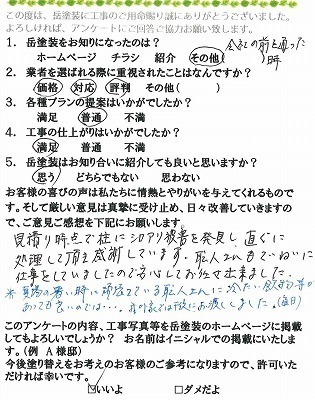 この度は、岳塗装に工事のご用命賜り誠にありがとうございました。
よろしければ、アンケートにご回答ご協力お願い致します。
1. 岳塗装をお知りになったのは？
会社の前を通った時
ホームページ　チラシ　紹介　その他(
2. 業者を選ばれる際に重視されたことはなんですか？
価格　対応　評判　その他(　　　)
3. 各種プランの提案はいかがでしたか？
満足　普通　不満
4. 工事の仕上がりはいかがでしたか？
満足　普通　不満
5. 岳塗装はお知り合いに紹介しても良いと思いますか？
思う　どちらでもない　思わない
お客様の喜びの声は私たちに情熱とやりがいを与えてくれるもので
す。そして厳しい意見は真摯に受け止め、日々改善していきますの
で、ご意見ご感想を下記にお願いします。
見積り時点で柱にシロアリ被害を発見し直ぐに
処理して頂き感謝しています。職人さんもていねいに
仕事をしていましたので安心してお任せ出来ました。
*真夏の暑い時に頑張っている職人さんに冷たい飲み物等が
あっても良いのでは…。我が家では十分にお渡ししました。(毎日)
このアンケートの内容、工事写真等を岳塗装のホームページに掲載
してもよろしいでしょうか？　お名前はイニシャルでの掲載にいたし
ます。(例　A 様邸)
今後塗り替えをお考えのお客様のご参考になりますので、許可いた
だければ幸いです。
☑いいよ　□ダメだよ